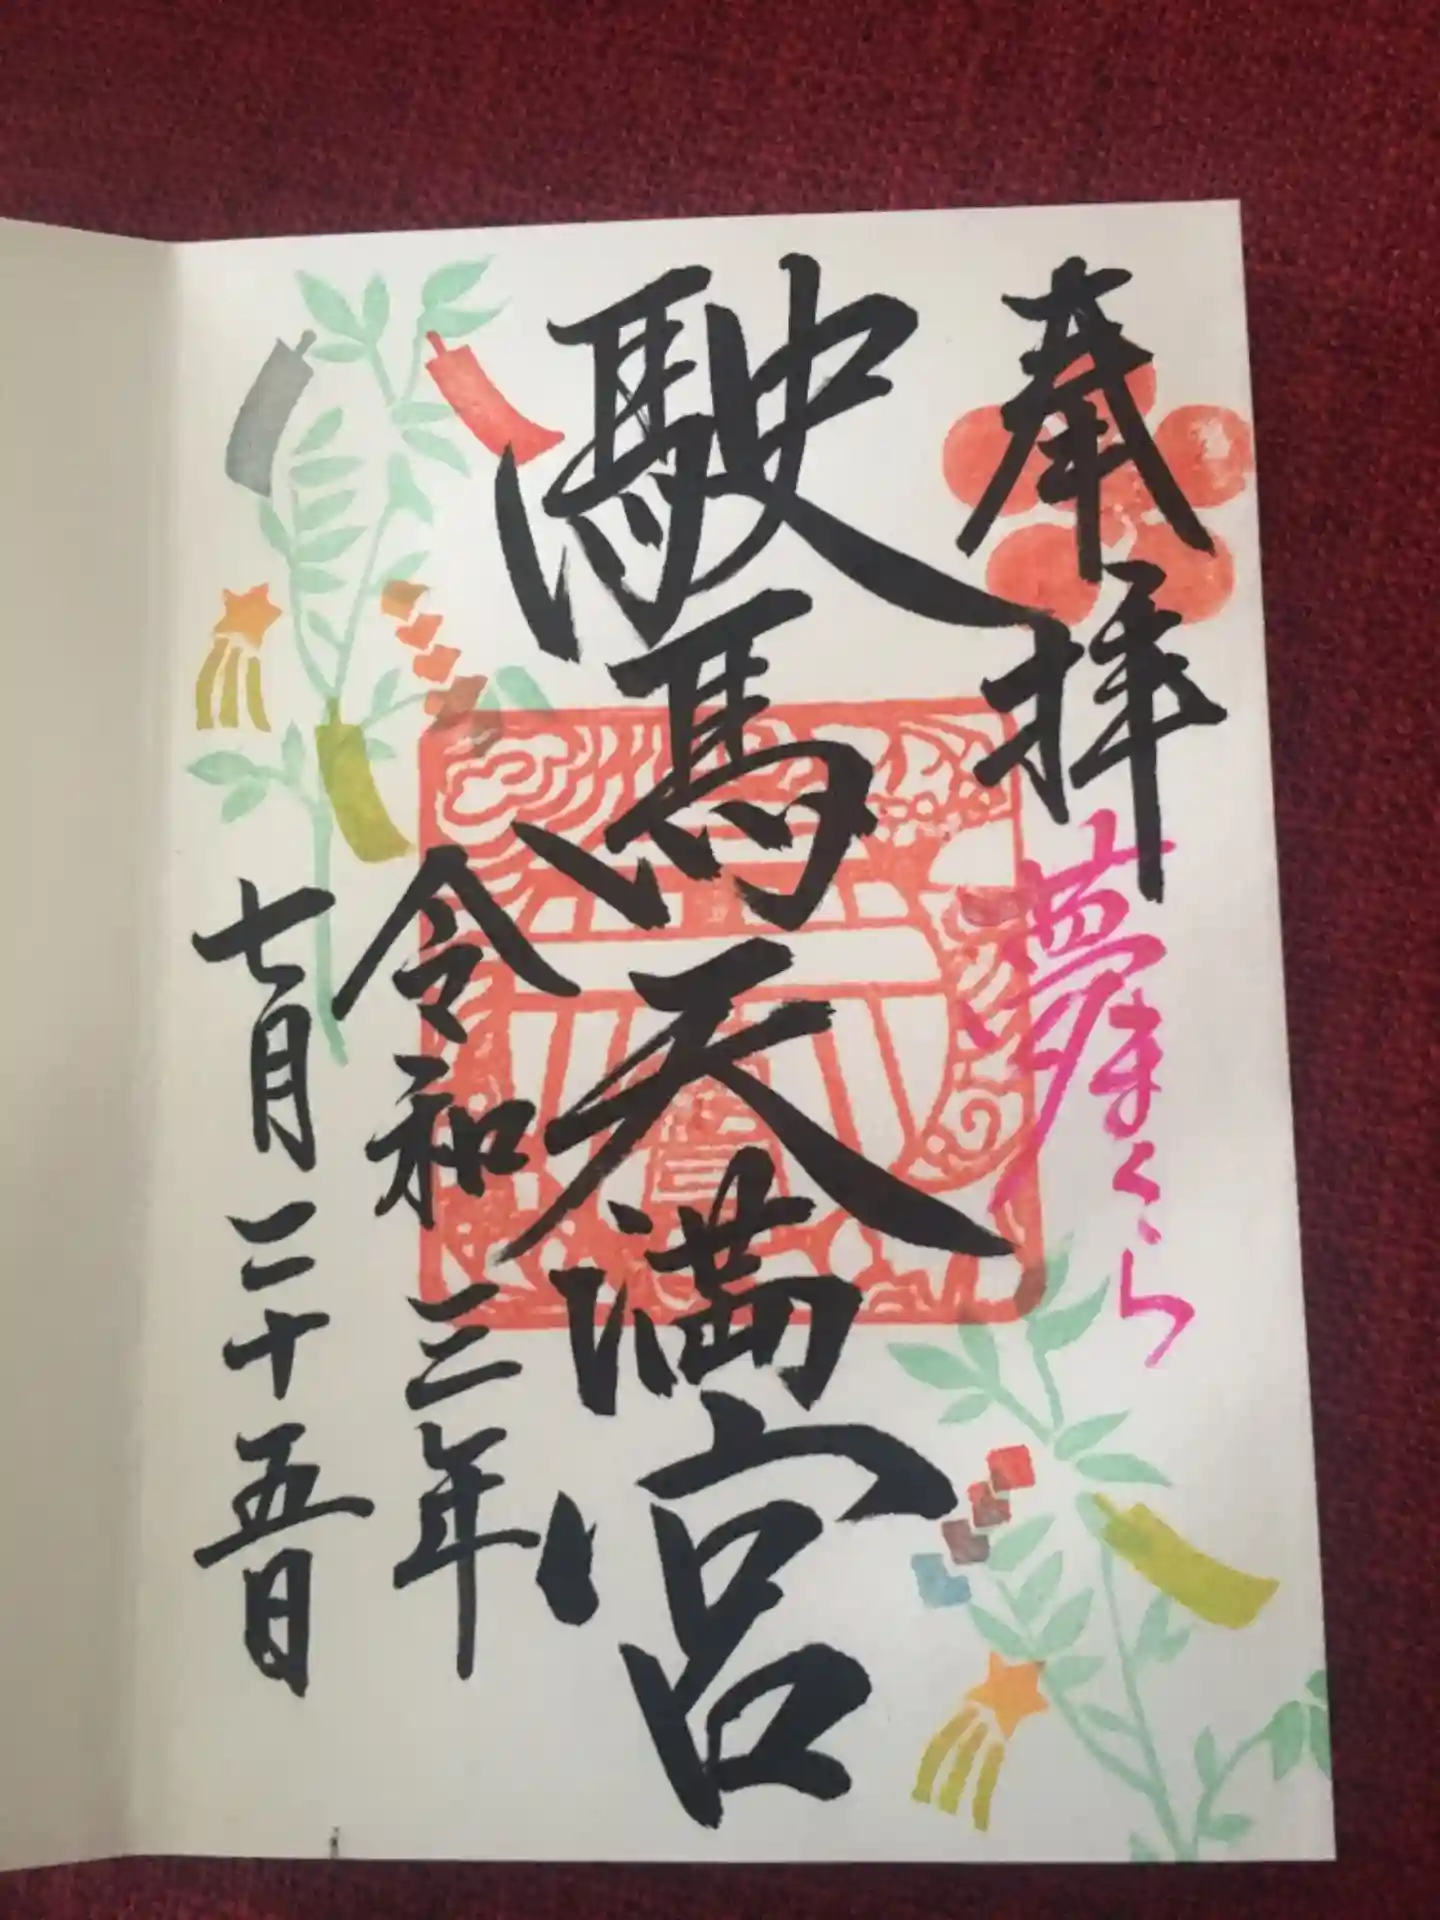 奉拝
夢まくら
駛馬天満宮
令和三年
七月二十五日